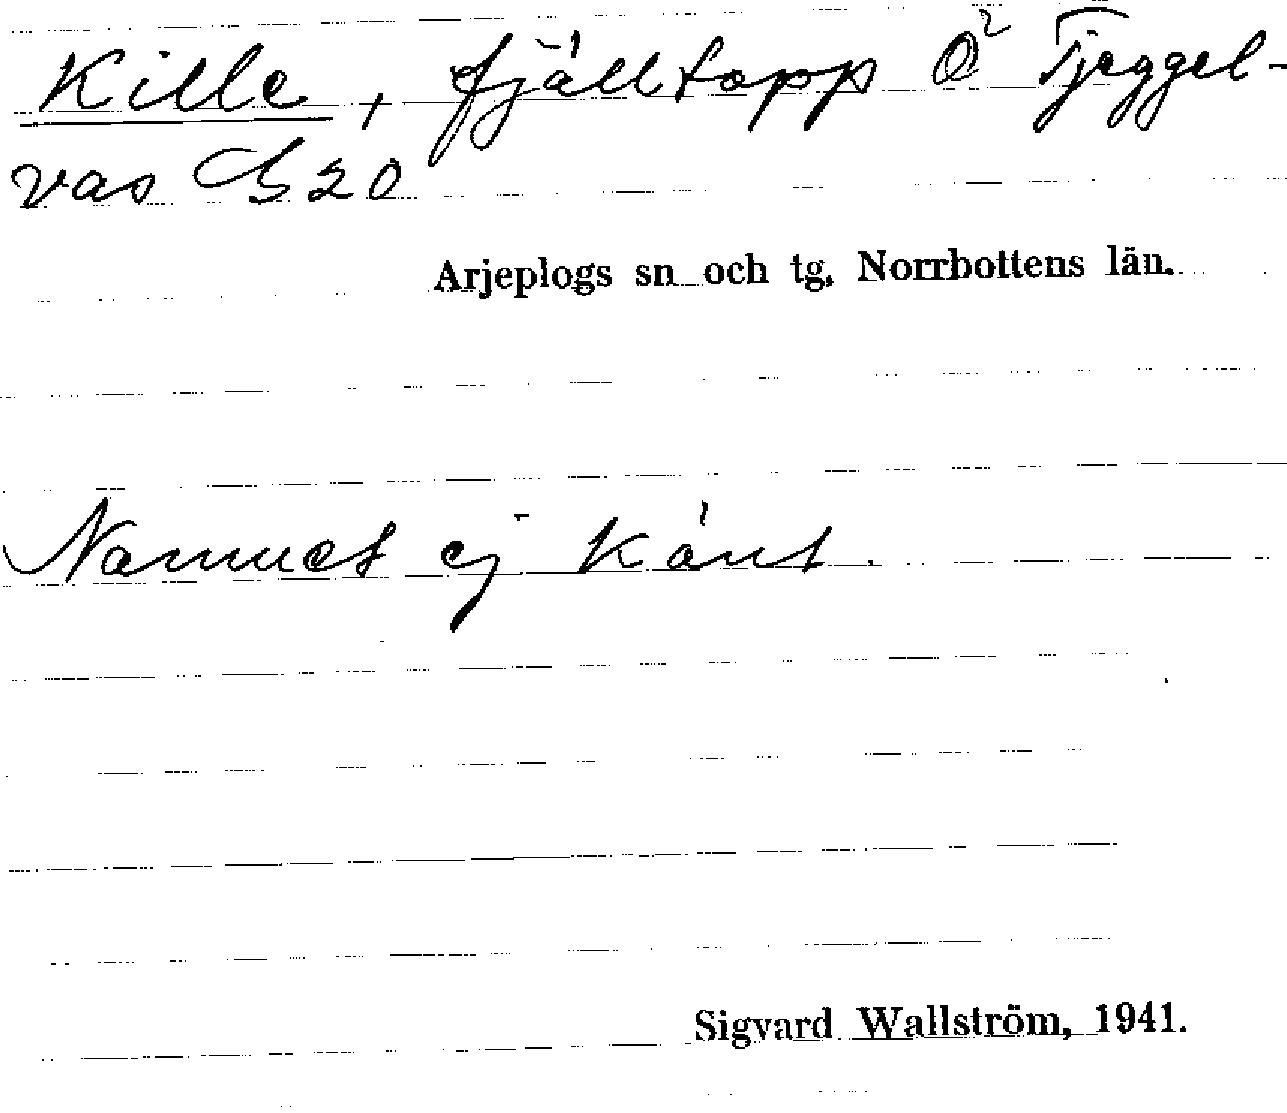 Kille, fjälltopp Ö Tjeggel-
vas S20
Arjeplogs sn och tg, Norrbottens län.
Namnet ej känt.
Sigvard Wallström, 1941.